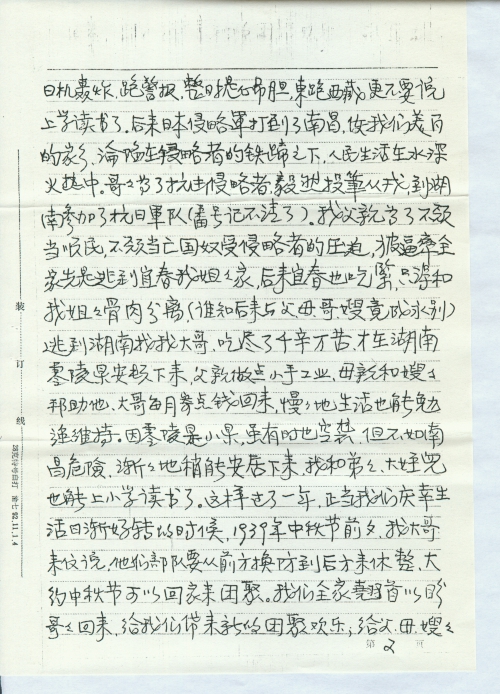 日机轰炸，跑警报，整日提心吊胆，東跑西藏，更不要说
上学读书了。后来日本侵略軍打到了南昌，使我们美百
的家乡，淪陷在侵略者的铁蹄之下，人民生活在水深
火热中。哥々为了抗击侵略者，毅然投筆从戎，到湖
南参加了抗日軍队（番号记不清了）。我父親为了不愿
当顺民，不愿当亡国奴受侵略者的压迫，被逼率全
家先是逃到宜春我姐々家，后来宜春也吃緊，只得和
我姐々骨肉分离，（谁知后来与父、母、哥、嫂竟成永别）
逃到湖南找我大哥，吃尽了千辛万苦，才在湖南
零陵县安顿下来，父親做点小手工业，母親和嫂々
邦助他，大哥每月寄点钱回来，慢々地生活也能勉
强维持。因零陵是小县，虽有时也空袭，但不如南
昌危険，渐々地稍能安居下来，我和弟々、大姪児
也能上小学读书了。这样过了一年，正当我们庆幸生
活日渐好转的时候，1939年中秋节前夕，我大哥
来信说，他们部队要从前方换防到后方来休整，大
约中秋节可以回家来团聚。我们全家翹首以盼
哥々回来，给我们带来新的团聚欢乐；给父、母、嫂々
第 2 页
装 订 线